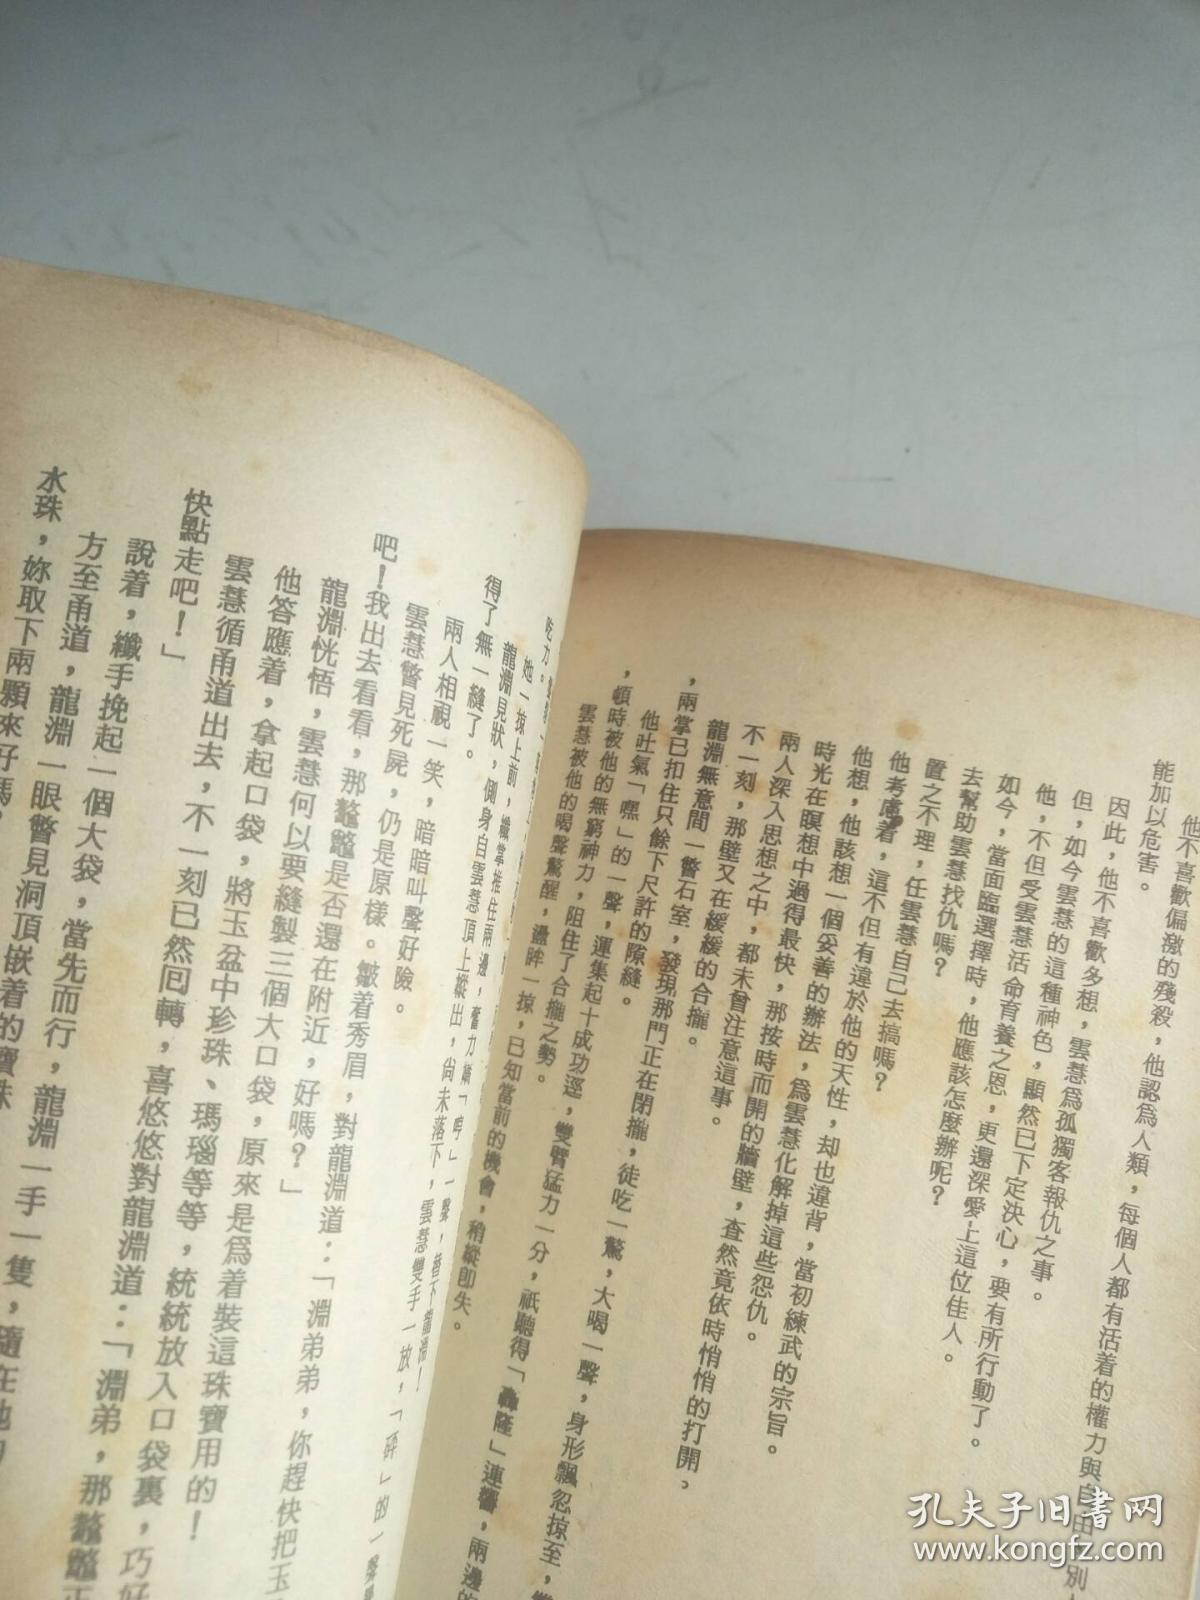 他不喜歡偏激的殘殺，他認為人類，每個人都有活着的權力與自由
能加以危害。
因此，他不喜歡多想，雲慧為孤獨客報仇之事。
但，如今雲慧的這種神色，顯然已下定決心，要有所行動了。
他，不但受雲慧活命育養之恩，更還深愛上這位佳人。
如今，當面臨選擇時，他應該怎麼辦呢？
去幫助雲慧找仇嗎？
置之不理，任雲慧自己去搞嗎？
他考慮着，這不但有違於他的天性，却也違背，當初練武的宗旨。
他想，他該想一個妥善的辦法，為雲慧化解掉這些怨仇。
時光在瞑想中過得最快，那按時而開的牆壁，查然竟依時悄悄的打開。
兩人深入思想之中，都未曾注意這事。
不一刻，那壁又在緩緩的合攏。
龍淵無意間一瞥石室，發現那門正在閉攏，徒吃一驚，大喝一聲，身形飄忽掠至，
，兩掌已扣住只餘下尺許的隙縫。
他吐氣「嘿」的一聲，運集起十成功逕，雙臂猛力一分，祇聽得「轟隆」連響，兩邊的
，頓時被他的無窮神力，阻住了合攏之勢。
雲慧被他的喝聲驚醒，盪眸一掠，已知當前的機會，稍縱卽失。
吃力。
她一掠上前，纖掌推住兩邊，奮力嬌「哼」一聲，替下龍淵！
龍淵見狀，側身自雲慧頂上縱出，尙未落下，雲慧雙手一放，「砰」的一聲
得了無一縫了。
兩人相視一笑，暗暗叫聲好險。
雲慧瞥見死屍，仍是原樣。皺着秀眉，對龍淵道：「淵弟弟，你趕快把玉
吧！我出去看看，那鼇鼉是否還在附近，好嗎？」
龍淵恍悟，雲慧何以要縫製三個大口袋，原來是為着裝這珠寶用的！
他答應着，拿起口袋，將玉盆中珍珠、瑪瑙等等，統統放入口袋裏，巧好
雲慧循甬道出去，不一刻已然囘轉，喜悠悠對龍淵道：「淵弟，那鼇鼉正
快點走吧！」
說着，纖手挽起一個大袋，當先而行，龍淵一手一隻，隨在她
方至甬道，龍淵一眼瞥見洞頂嵌着的寶珠
水珠，妳取下兩顆來好嗎？
孔夫子旧书网
www.kongfz.com